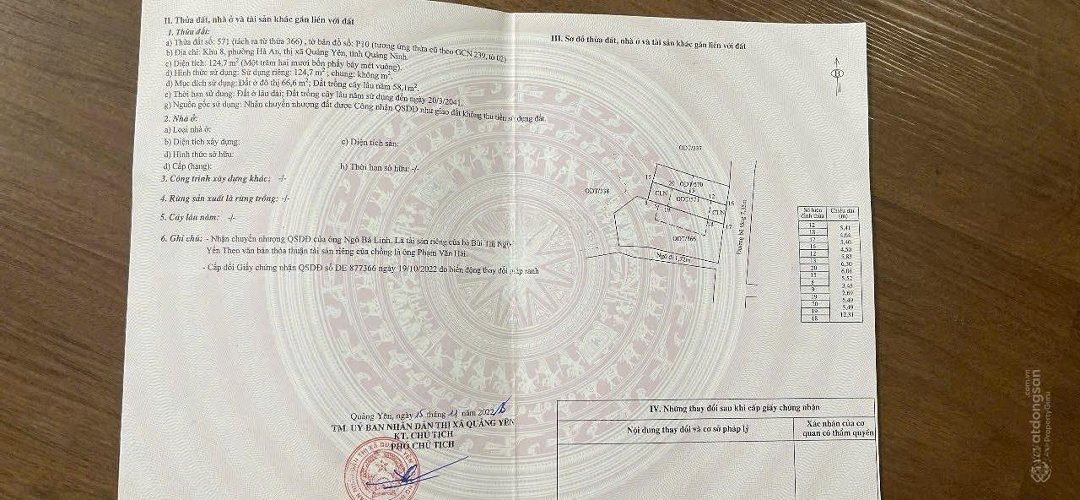 II. Thửa đất, nhà ở và tài sản khác gắn liền với đất
1. Thửa đất:
a) Thửa đất số: 571 (tách ra từ thửa 366) , tờ bản đồ số: P10 (tương ứng thửa cũ theo GCN 239, tờ 02)
b) Địa chỉ: Khu 8, phường Hà An, thị xã Quảng Yên, tỉnh Quảng Ninh.
c) Diện tích: 124,7 m² (Một trăm hai mươi bốn phẩy bảy mét vuông).
d) Hình thức sử dụng: Sử dụng riêng: 124,7 m² ; chung: không m².
đ) Mục đích sử dụng: Đất ở đô thị 66,6 m²; Đất trồng cây lâu năm 58,1m².
e) Thời hạn sử dụng: Đất ở lâu dài; Đất trồng cây lâu năm sử dụng đến ngày 20/3/2041.
g) Nguồn gốc sử dụng: Nhận chuyển nhượng đất được Công nhận QSDĐ như giao đất không thu tiền sử dụng đất.
2. Nhà ở:
a) Loại nhà ở:
b) Diện tích xây dựng:
c) Diện tích sàn:
d) Hình thức sở hữu:
đ) Cấp (hạng):
h) Thời hạn sở hữu: -/-
3. Công trình xây dựng khác: -/-
4. Rừng sản xuất là rừng trồng: -/-
5. Cây lâu năm: -/-
6. Ghi chú: - Nhận chuyển nhượng QSDĐ của ông Ngô Bá Linh. Là tài sản riêng của bà Bùi Thị Ngọc
Yến Theo văn bản thỏa thuận tài sản riêng của chồng là ông Phạm Văn Hải.
- Cấp đổi Giấy chứng nhận QSDĐ số DE 877366 ngày 19/10/2022 do biến động thay đổi giáp ranh
Quảng Yên, ngày 15 tháng 11 năm 2022
TM. UỶ BAN NHÂN DÂN THỊ XÃ QUẢNG YÊN
KT. CHỦ TỊCH
PHÓ CHỦ TỊCH
III. Sơ đồ thửa đất, nhà ở và tài sản khác gắn liền với đất
ODT/337
ODT/338
ODT/570
CLN
ODT/571
CLN
ODT/365
Ngõ đi 1,72m
Số hiệu đỉnh thửa
Chiều dài (m)
12
5,41
IV. Những thay đổi sau khi cấp giấy chứng nhận
Nội dung thay đổi và cơ sở pháp lý
Xác nhận của cơ
quan có thẩm quyền
Batdongsan
.com.vn
by PropertyGuru